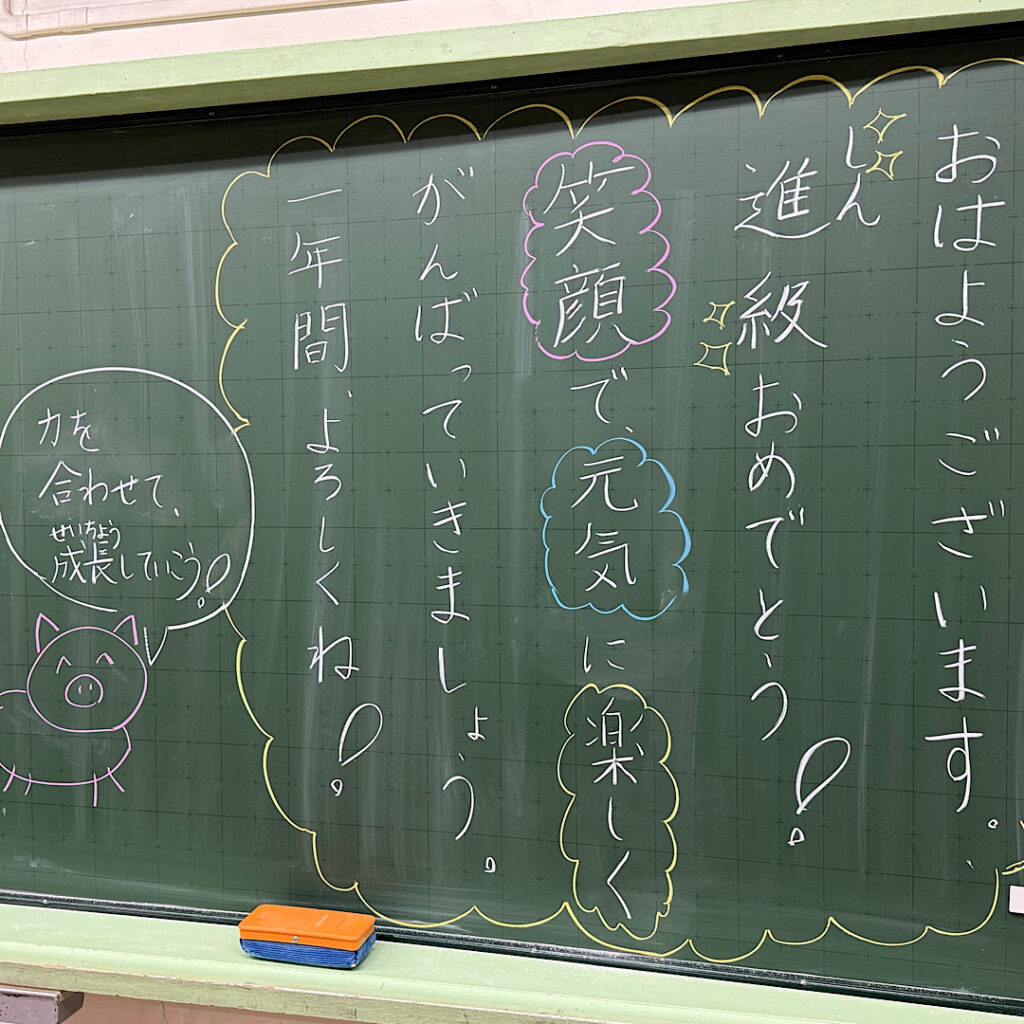 おはようございます。
しん
進級おめでとう!
笑顔で、元気に楽しく
がんばっていきましょう。
一年間、よろしくね!
力を
合わせて、
せいちょう
成長していこう!